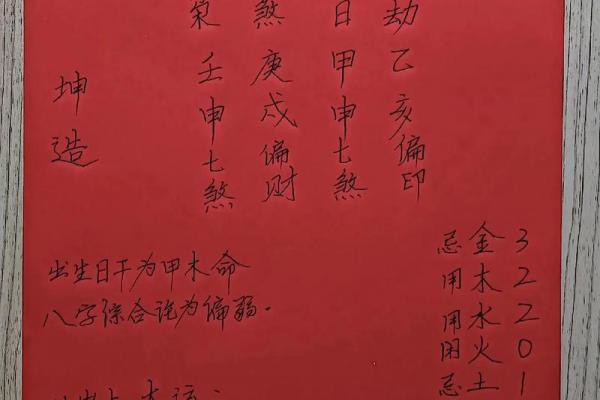 坤造
枭 煞 日 劫
壬 庚 甲 乙
申 戌 申 亥
七煞 偏财 七煞 偏印
出生日干为甲木命
八字综合论为偏弱。
忌金3
用木2
用水2
闲火0
忌土1